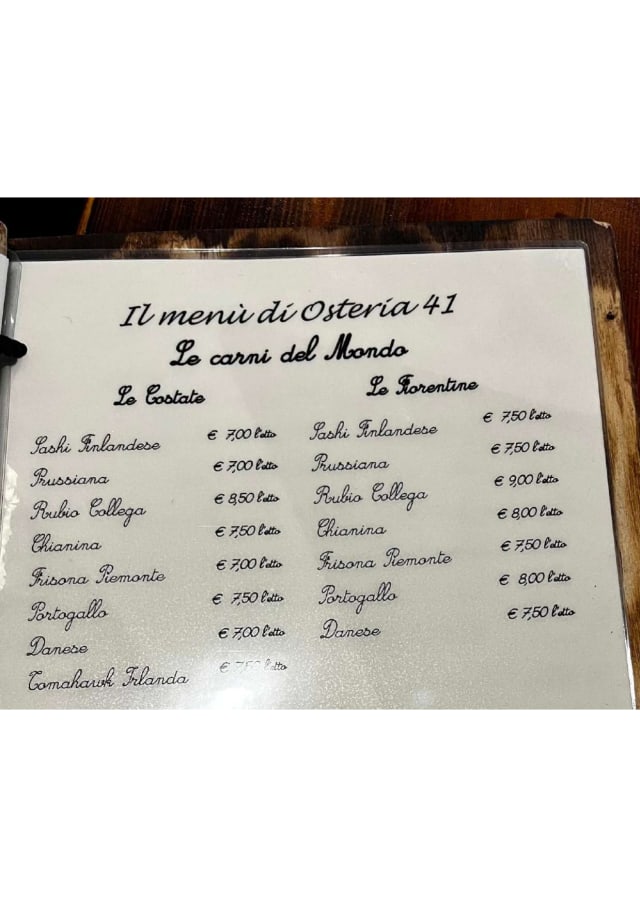 Il menù di Osteria 41
Le carni del Mondo
Le Costate
Sashi Finlandese € 7,00 l'etto
Prussiana € 7,00 l'etto
Rubio Gallega € 8,50 l'etto
Chianina € 7,50 l'etto
Frisona Piemonte € 7,00 l'etto
Portogallo € 7,50 l'etto
Danese € 7,00 l'etto
Tomahawk Irlanda € 7,50 l'etto
Le Fiorentine
Sashi Finlandese € 7,50 l'etto
Prussiana € 7,50 l'etto
Rubio Gallega € 9,00 l'etto
Chianina € 8,00 l'etto
Frisona Piemonte € 7,50 l'etto
Portogallo € 8,00 l'etto
Danese € 7,50 l'etto